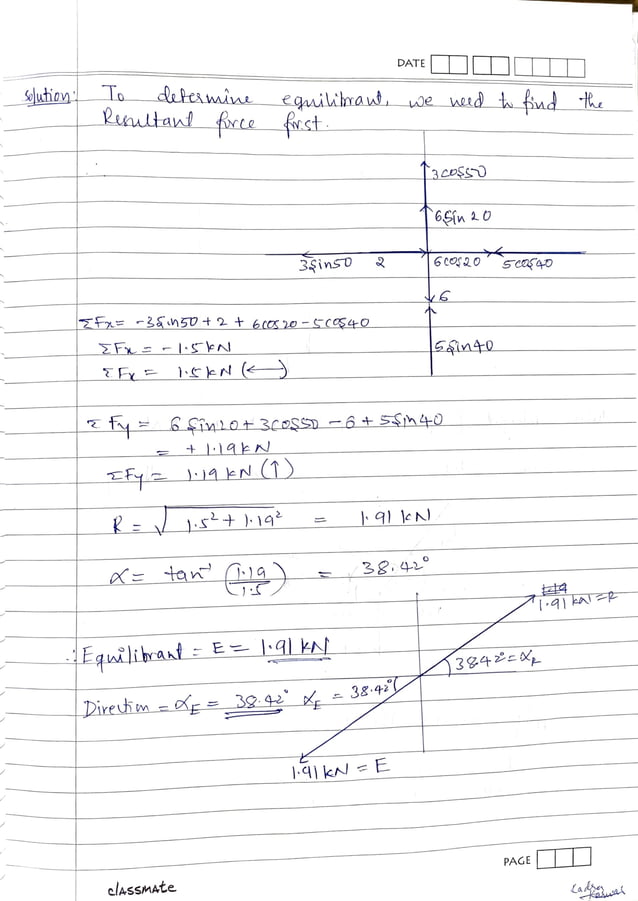 DATE
Solution: To determine equilibrant, we need to find the
Resultant force first.
3cos50
6Sin 20
3Sin50 2 6cos20 5cos40
6
5Sin40
ΣFx = -3Sin50 + 2 + 6cos20 - 5cos40
ΣFx = -1.5kN
ΣFx = 1.5kN (←)
ΣFy = 6Sin20 + 3cos50 - 6 + 5Sin40
= +1.19kN
ΣFy = 1.19kN (↑)
R = √1.5² + 1.19² = 1.91 kN
α = tan⁻¹ (1.19/1.5) = 38.42°
1.91 kN = R
∴ Equilibrant = E = 1.91 kN
38.42° = αR
Direction = αE = 38.42° αE = 38.42°
1.91 kN = E
PAGE
classmate